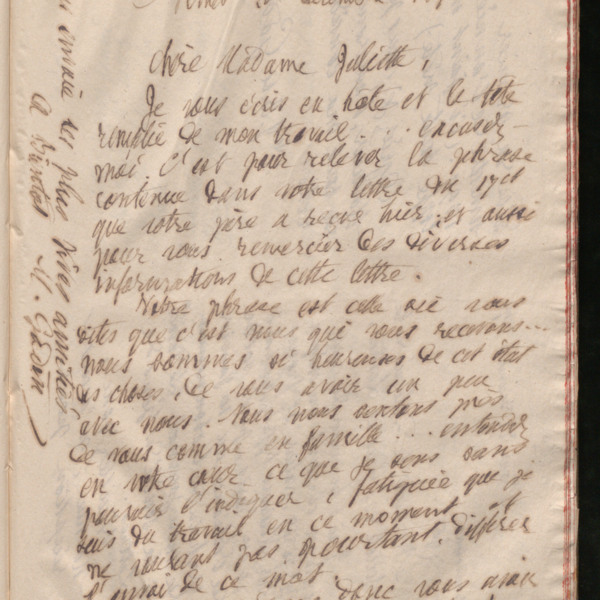 Chère Madame Juliette,
Je vous écris en hâte et la tête
remplie de mon travail . . . excusez-
moi. C'est pour relever la phrase
contenue dans votre lettre du 17 ct
que votre père a reçue hier, et aussi
pour vous remercier des diverses
informations de cette lettre.
Votre phrase est celle où vous
dites que c'est nous qui vous recevons...
nous sommes si heureuses de cet état
des choses, de vous avoir un peu
avec nous. Nous nous sentons près
de vous comme en famille . . . entendez
en votre cœur ce que je sens sans
pouvoir l'indiquer, fatiguée que je
suis du travail en ce moment et
ne voulant pas pourtant différer
l'envoi de ce mot.
donc vous
les plus vives amitiés
M. Godin